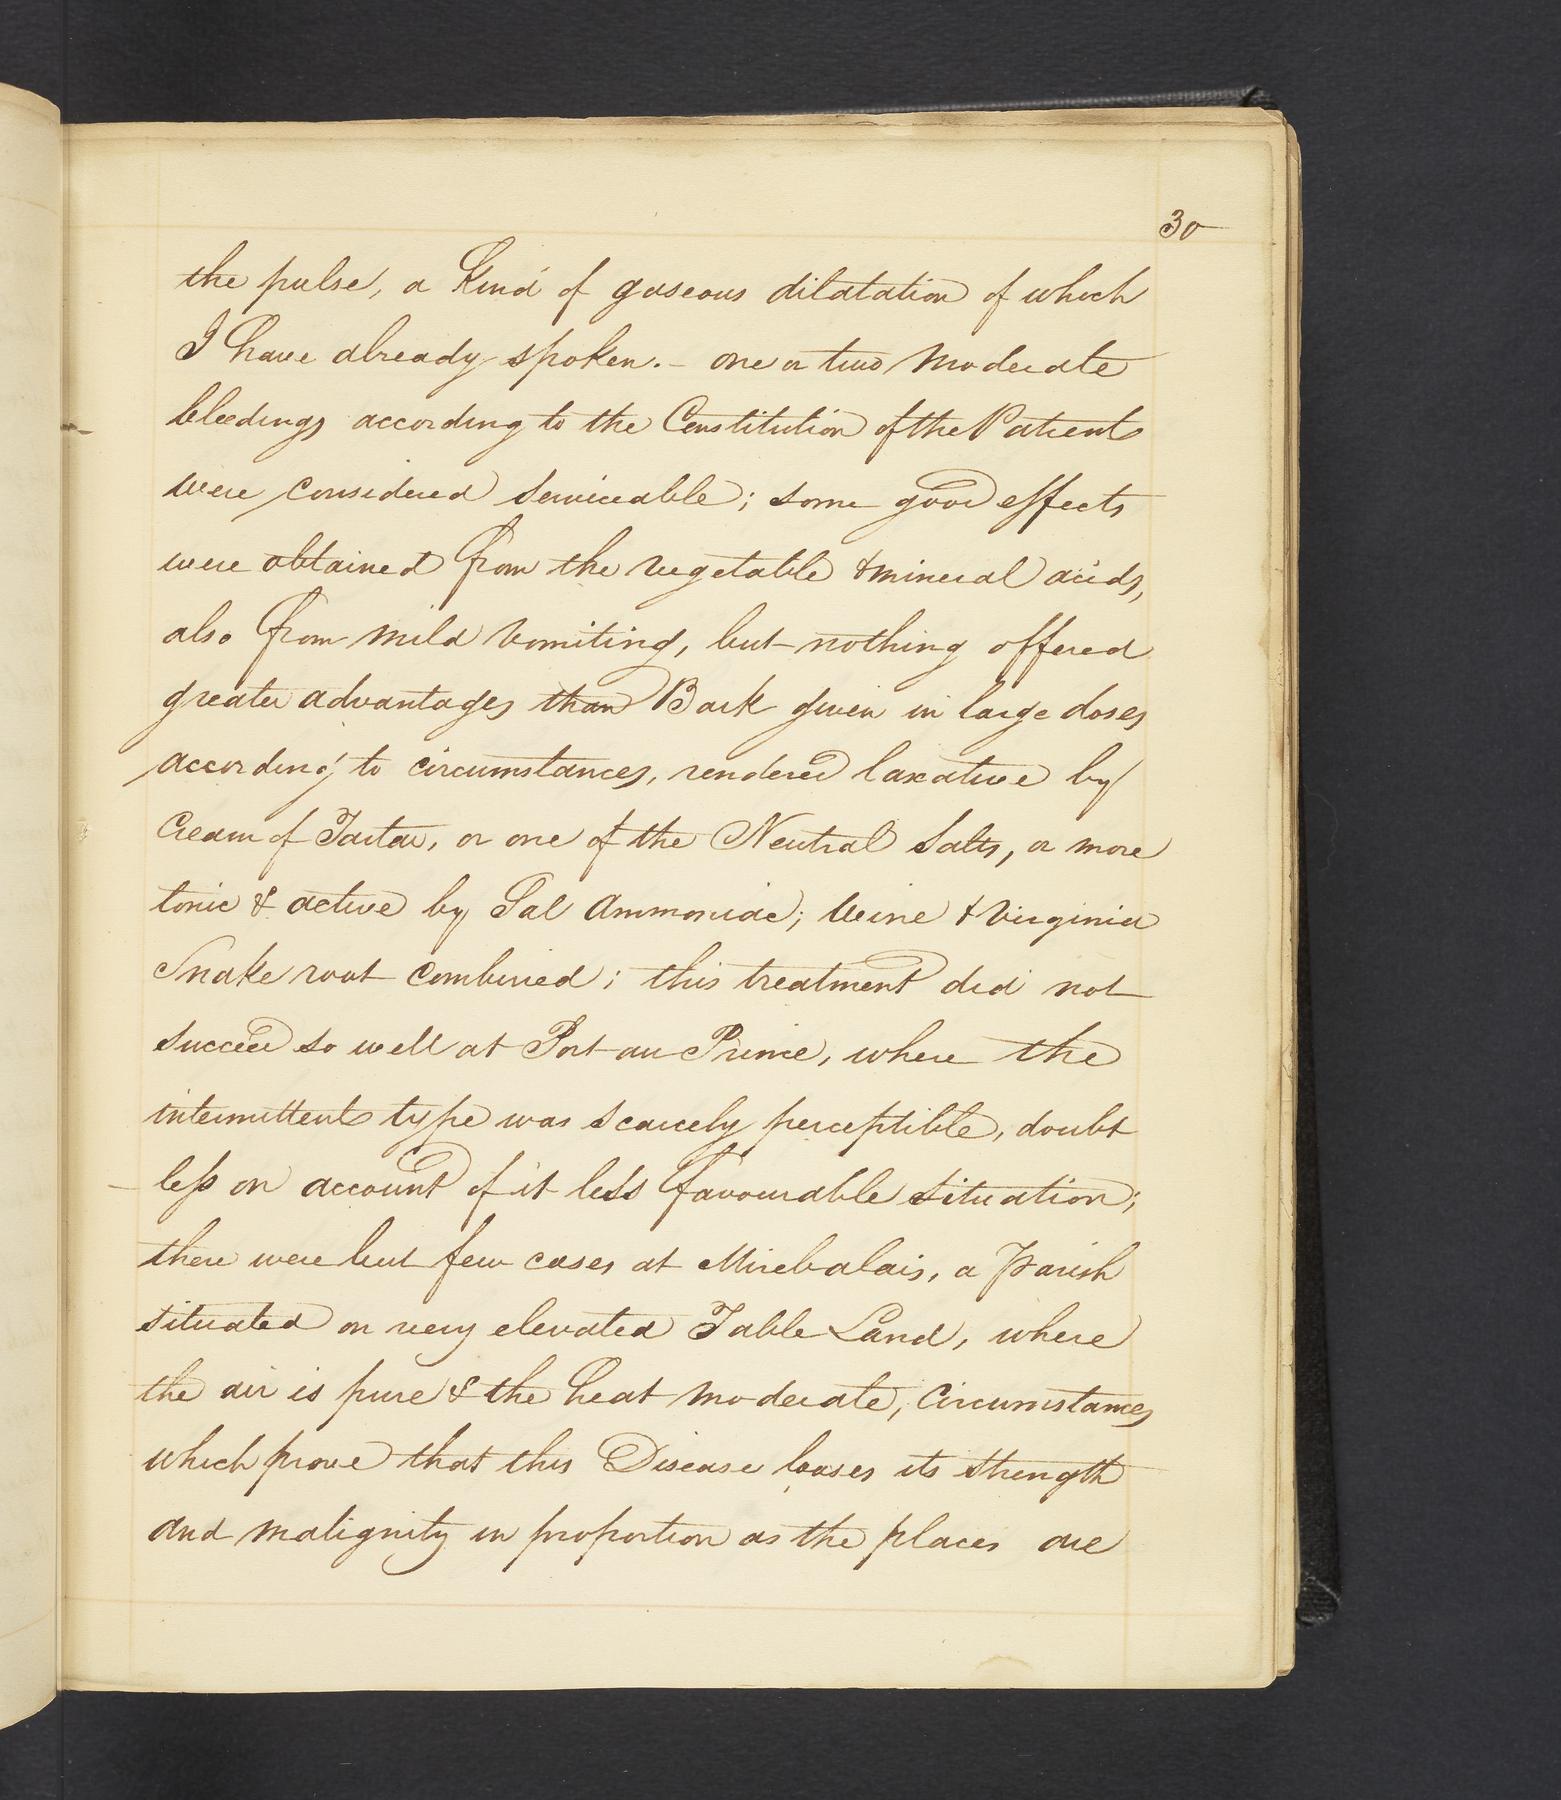 30
the pulse, a Kind of gaseous dilatation of which
I have already spoken. - one or two moderate
bleedings according to the Constitution of the Patients
were considered serviceable; some good effects
were obtained from the vegetable & mineral acids,
also from mild vomiting, but nothing offered
greater advantages than Bark given in large doses
according to circumstances, rendered laxative by
Cream of Tartar, or one of the Neutral Salts, or more
tonic & active by Sal Ammoniac; Wine & Virginia
Snake root combined; this treatment did not
succeed so well at Port au Prince, where the
intermittent type was scarcely perceptible, doubt
less on account of it less favourable situation;
there were but few cases at Mirebalais, a parish
situated on very elevated Table Land, where
the air is pure & the heat moderate, circumstances
which prove that this Disease looses its strength
and malignity in proportion as the places are